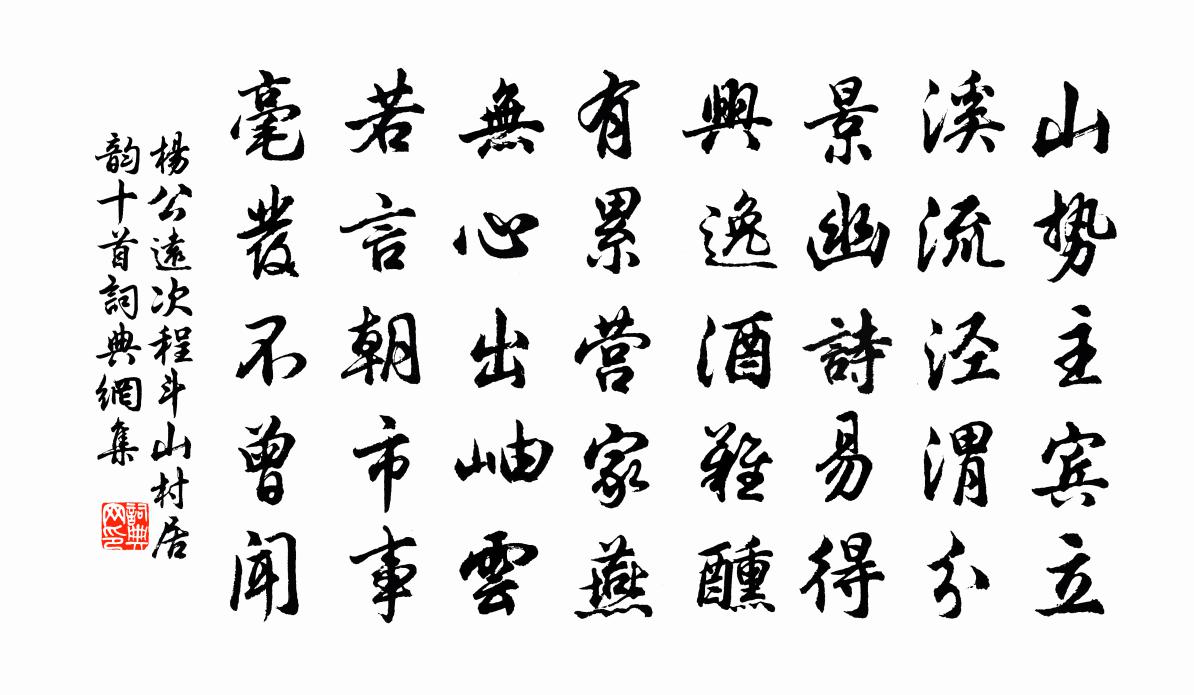 山势主宾立
溪流泾渭分
景幽詩易得
興逸酒難醺
有累营家燕
無心出岫雲
若言朝市事
毫發不曾聞
楊公遠次程斗山村居
韵十首詞典網集
詞典
网印